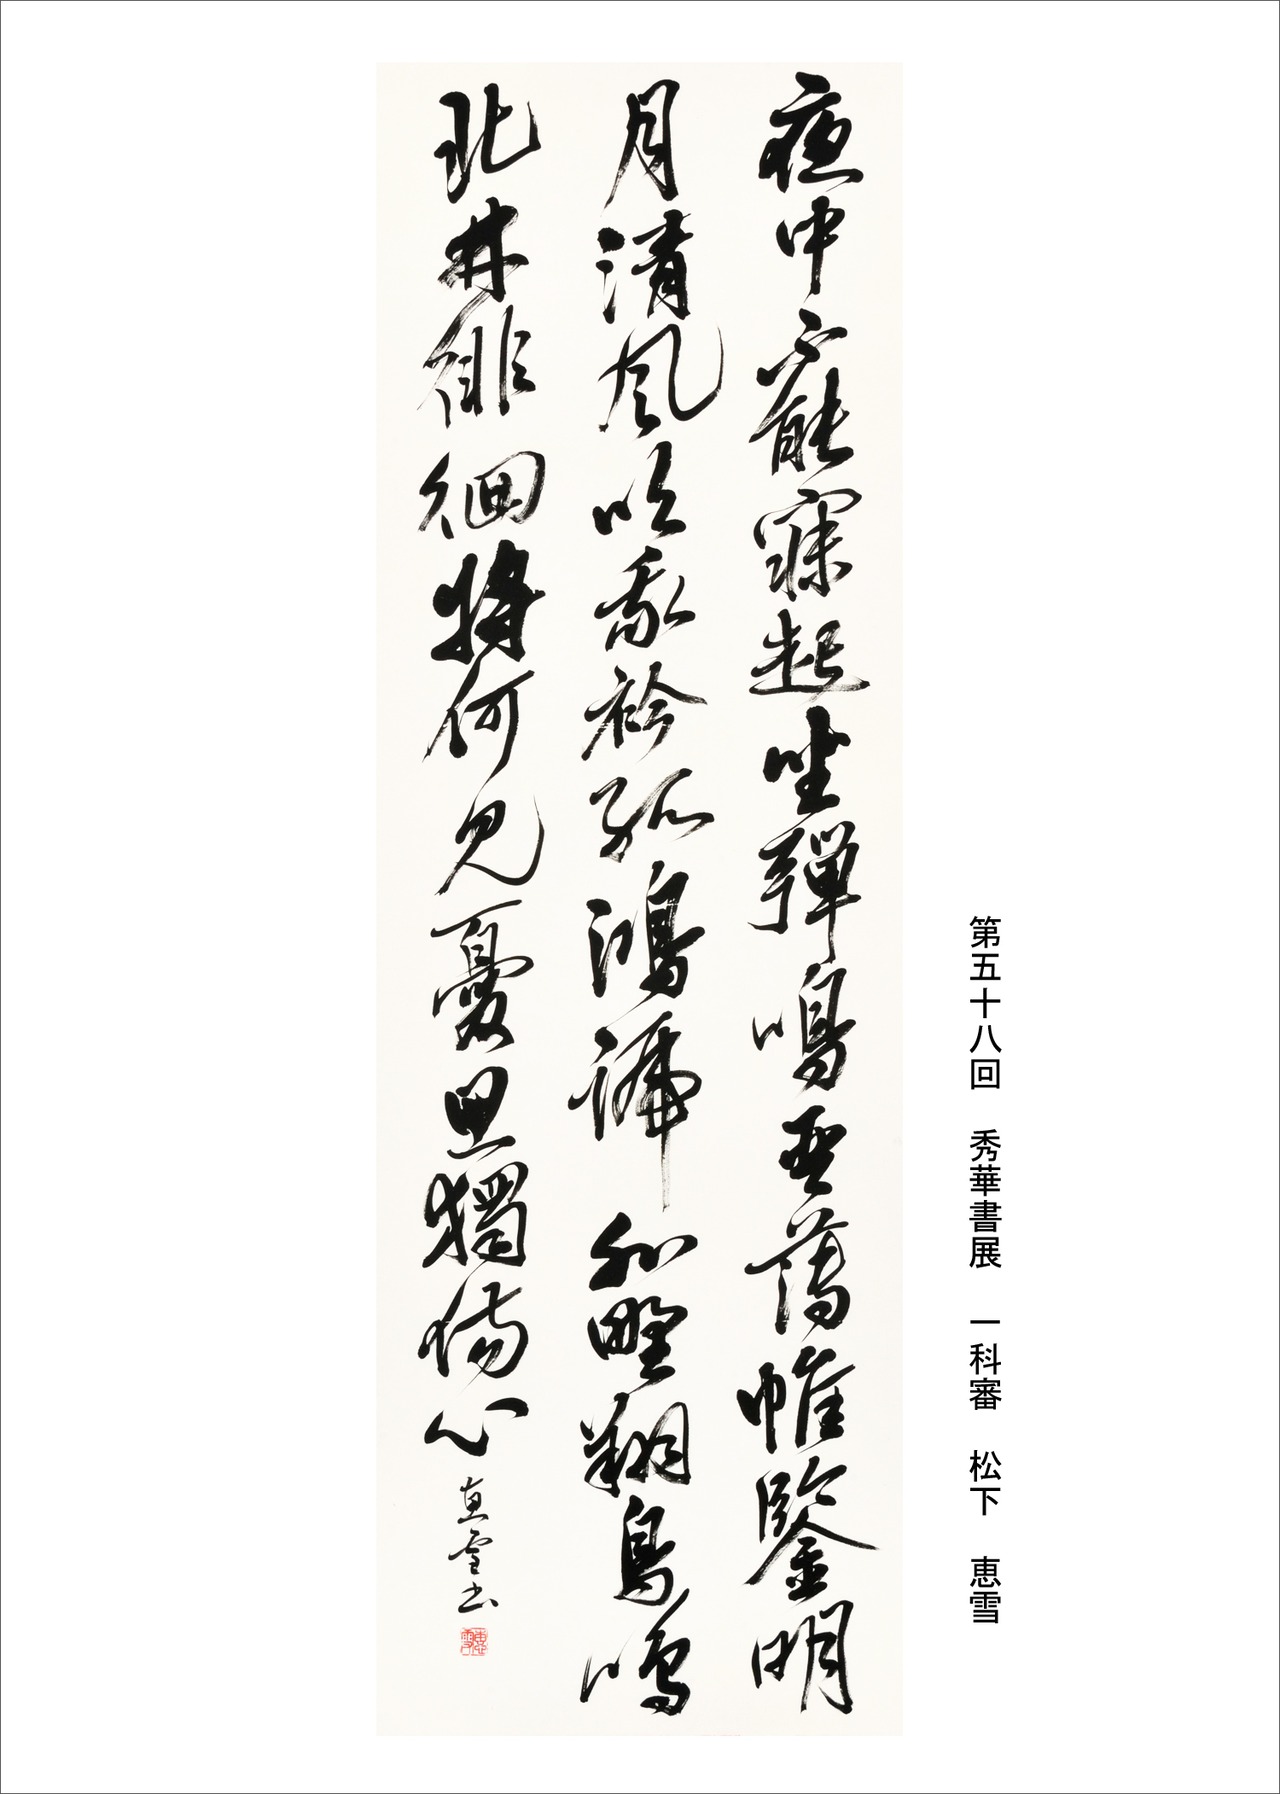 第五十八回　秀華書展　一科審　松下　恵雪
夜中不能寐起坐彈鳴琴薄帷鑒明
月清風吹我衿孤鴻號外野翔鳥鳴
北林徘徊將何見憂思獨傷心
恵雪書
恵雪